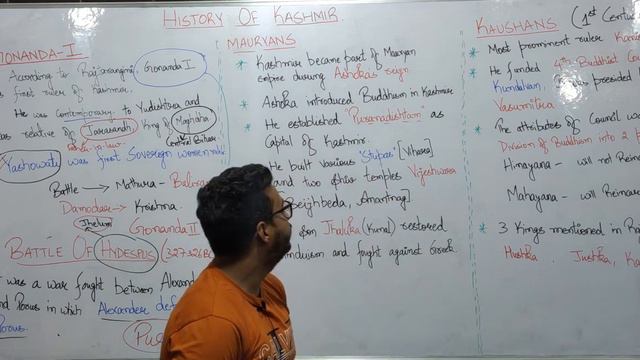 HISTORY OF KASHMIR.
GONANDA-I
According to Rajtarangini, Gonanda I
first ruler of Kashmir.
He was contemporary to Yudishtra and
was relative of Jarasandh King of Maghadha
Central Bihar
Yashowati was first Sovereign women ruler
Battle → Mathura - Balram
Damodar → Krishna
Jhelum
Gonanda II
BATTLE OF HYDESPUS (327-326BC
was a war fought between Alexander
and Porus in which Alexander def
Porus.
MAURYANS
* Kashmir became part of Mauryan
empire during Ashoka's reign
* Ashoka introduced Buddhism in Kashmir
* He established "Puranadishtan" as
Capital of Kashmir.
He built various Stupas [Vihara]
and two shiv temples Vijeshwara
[Beijhbeda, Anantnag]
son Jhaluka (Kunal) restored
Hinduism and fought against Greek
KAUSHANS (1st Centu
* Most prominent ruler Kani
* He funded 4th Buddhist Cou
Kundalvan, was presided
Vasumitra
* The attributes of Council wa
Division of Buddhism into 2 p
Hinayana - will not Rein
Mahayana - will Reincar
* 3 Kings mentioned in Ra
Hushka, Jushka, Ka